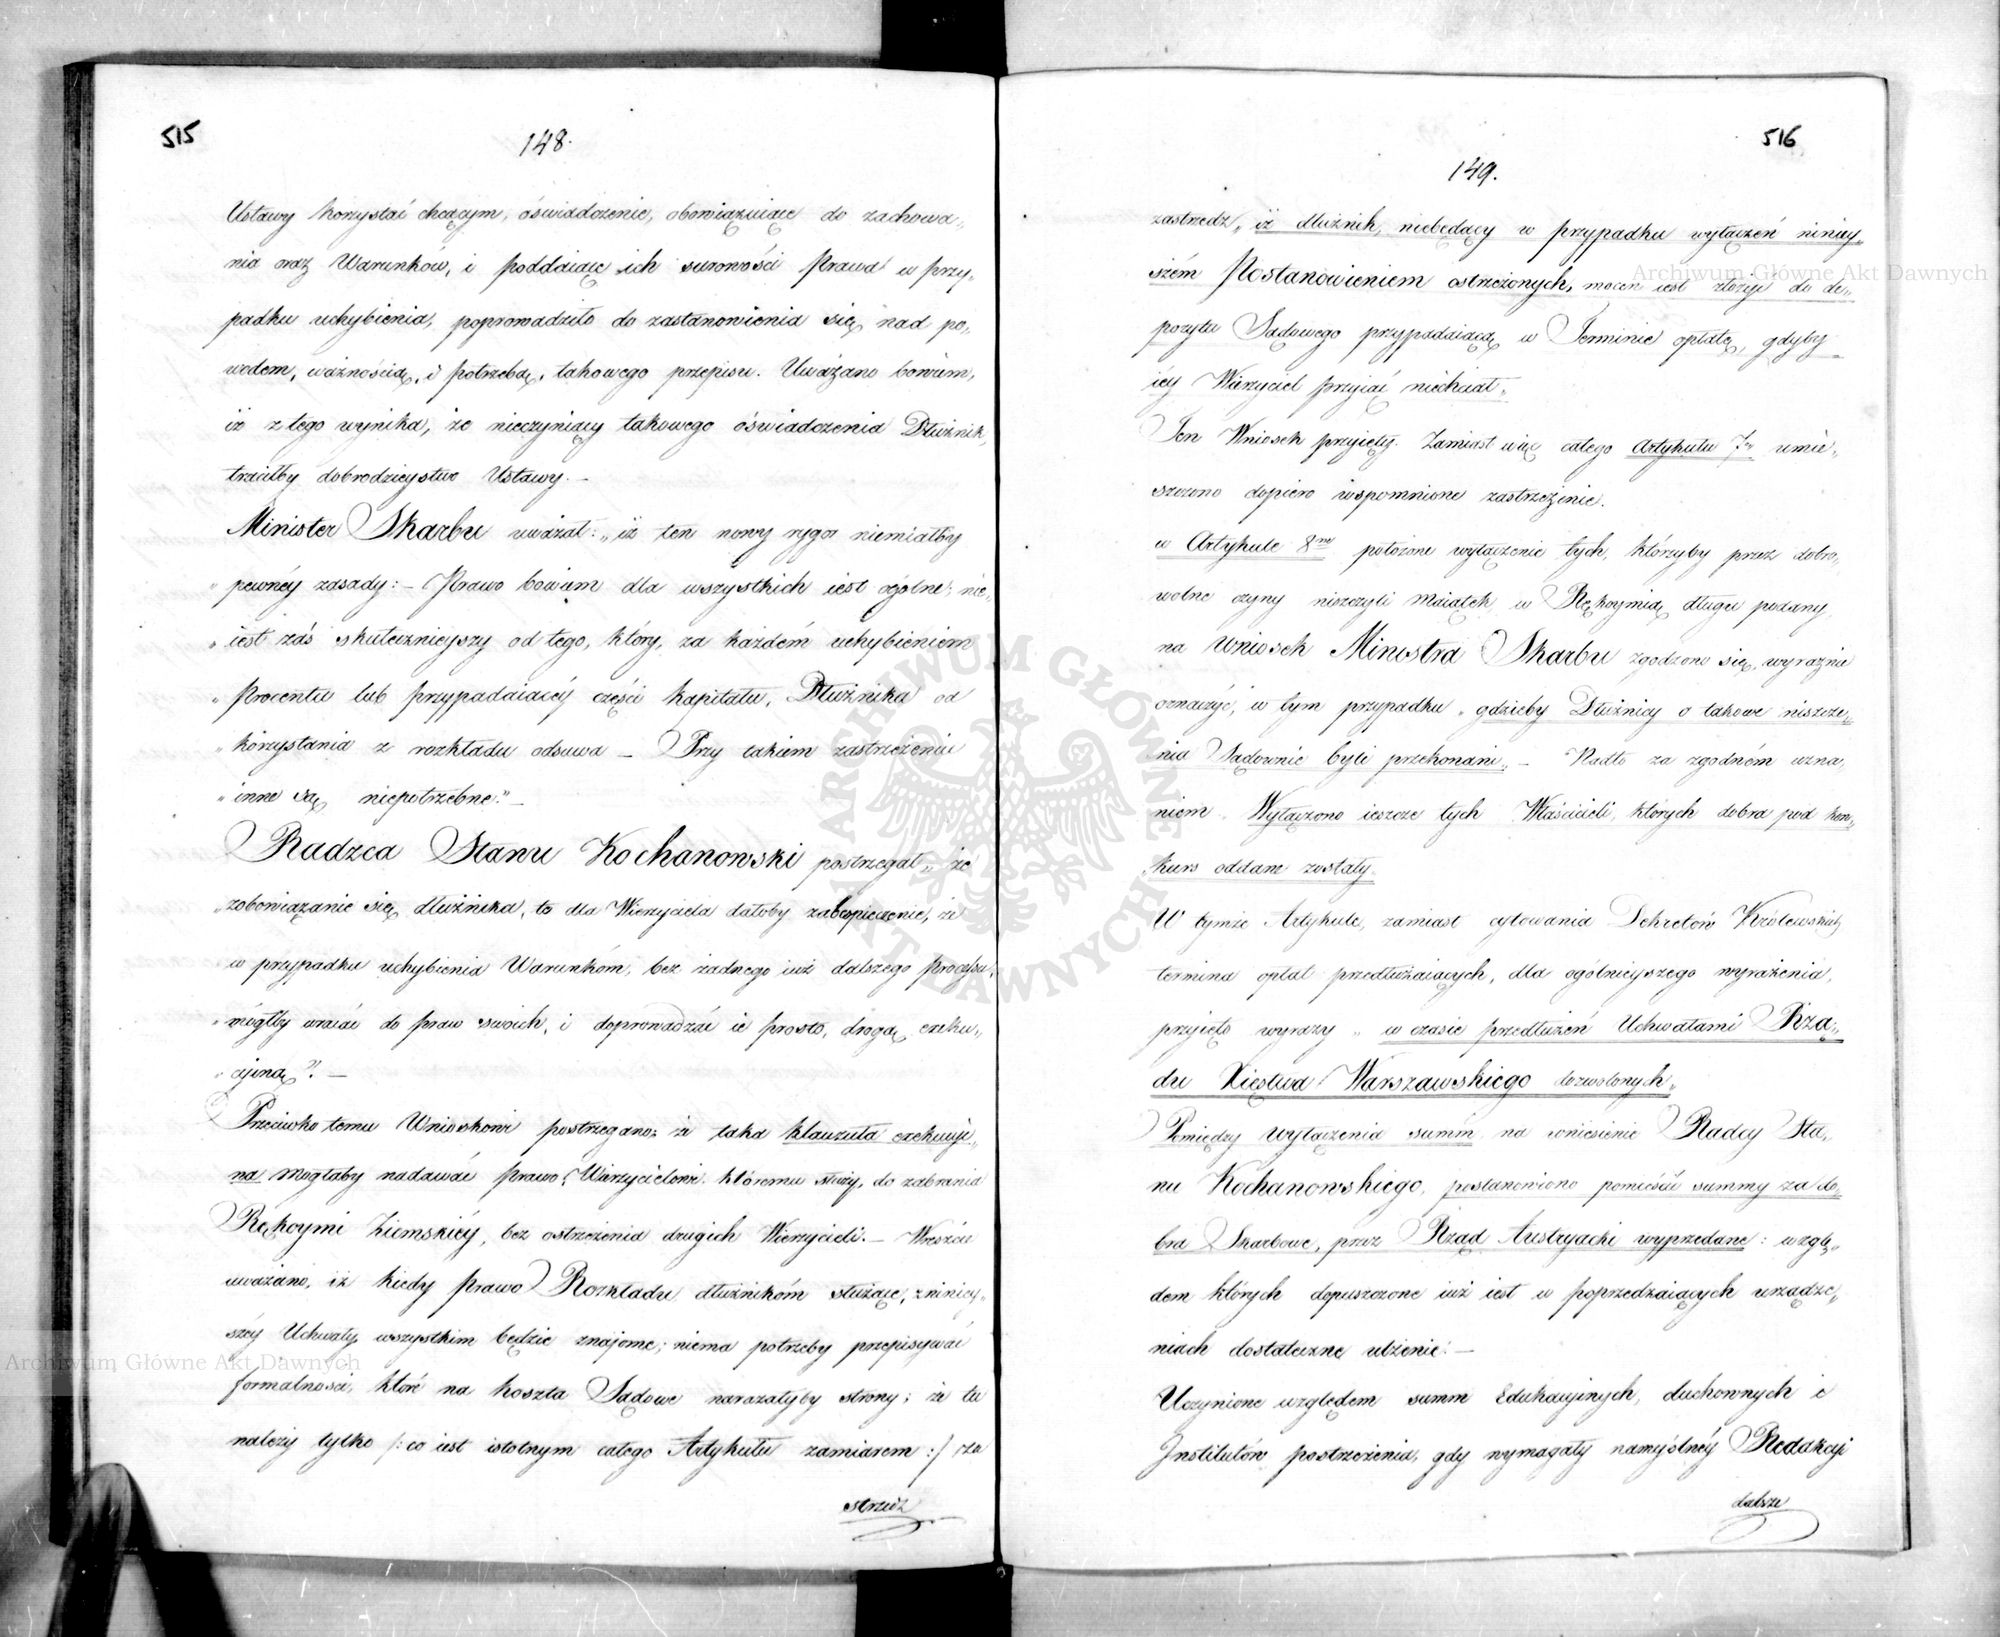 515
148.
Ustawy korzystać chcącym, oświadczenie, obowiązuiące do zachowa„
nia oraz Warunków, i poddaiąc ich surowości Prawa w przy„
padku uchybienia, poprowadziło do zastanowienia się nad po„
wodem, ważnością, i potrzebą, takowego przepisu. Uważano bowiem,
iż z tego wynika, że nieczyniący takowego oświadczenia Dłużnik,
traciłby dobrodzieystwo Ustawy. –
Minister Skarbu uważał: „iż ten nowy rygor niemiałby
„ pewnéy zasady: – Prawo bowiem dla wszystkich iest ogólne; nie„
„ iest zaś skutecznieyszy od tego, który, za każdém uchybieniem
„ Procentu lub przypadaiącéy części kapitału, Dłużnika od
„ korzystania z rozkładu odsuwa – Przy takiem zastrzeżeniu
„ inne są niepotrzebne." –
Radzca Stanu Kochanowski postrzegał „ że
„ zobowiązanie się dłużnika, to dla Wierzyciela dałoby zabespieczenie, iż
w przypadku uchybienia Warunkóm, bez żadnego iuż dalszego procesu,
„ mógłby wracać do praw swoich, i doprowadzać ie prosto, drogą exeku„
„ cyiną". –
Przeciwko temu Wnioskowi postrzegano; że taka klauzula exekucyi„
na mogłaby nadawać prawo Wierzycielowi, któremu służy, do zabrania
Rękoymi Ziemskiéy, bez ostrzeżenia drugich Wierzycieli. – Wreście
uważano, iż kiedy prawo Rozkładu dłużnikóm służące, z niniey„
széy Uchwały wszystkim będzie znajome; niema potrzeby przepisywać
formalności, któré na koszta Sądowe narażałyby strony; że tu
należy tylko /: co iest istotnym całego Artykułu zamiarem :/ za
strzedz
516
149.
zastrzedz „ iż dłużnik, niebędący w przypadku wyłączeń niniey„
szém Postanowieniem ostrzeżonych, mocen iest złożyć do de„
pozytu Sądowego przypadaiącą w Terminie opłatę, gdyby
iéy Wierzyciel przyiąć niechciał„
Ten Wniosek przyięty. Zamiast więc całego Artykułu 7go umie„
szczono dopiero wspomnione zastrzeżenie.
w Artykule 8my położone wyłączenie tych, którzyby przez dobro„
wolne czyny niszczyli Maiątek w Rękoymią długu podany,
na Wniosek Ministra Skarbu zgodzono się, wyraźnie
oznaczyć, w tym przypadku „ gdzieby Dłużnicy o takowe niszcze„
nia Sądownie byli przekonani„ – Nadto za zgodném uzna„
niem, Wyłączono ieszcze tych Właścicieli, których dobra pod kon„
kurs oddane zostały.
W tymże Artykule, zamiast cytowania Dekretów Królewskich
termina opłat przedłużaiących, dla ogólnieyszego wyrażenia,
przyięto wyrazy „ w czasie przedłużeń Uchwałami Rzą„
du Xięstwa Warszawskiego dozwolonych„
Pomiędzy wyłączenia summ na wniesienie Radcy Sta„
nu Kochanowskiego, postanowiono pomieścić summy za do„
bra Skarbowe, przez Rząd Austryacki wyprzedane: wzglę„
dem których dopuszczone iuż iest w poprzedzaiących urządze„
niach dostateczne ulżenie: –
Uczynione względem summ Edukacyinych, duchownych i
Institutów postrzeżenia, gdy wymagały namyślnéy Redakcyi
dalsze
Archiwum Główne Akt Dawnych
Archiwum Główne Akt Dawnych
ARCHIWUM GŁÓWNE AKT DAWNYCH